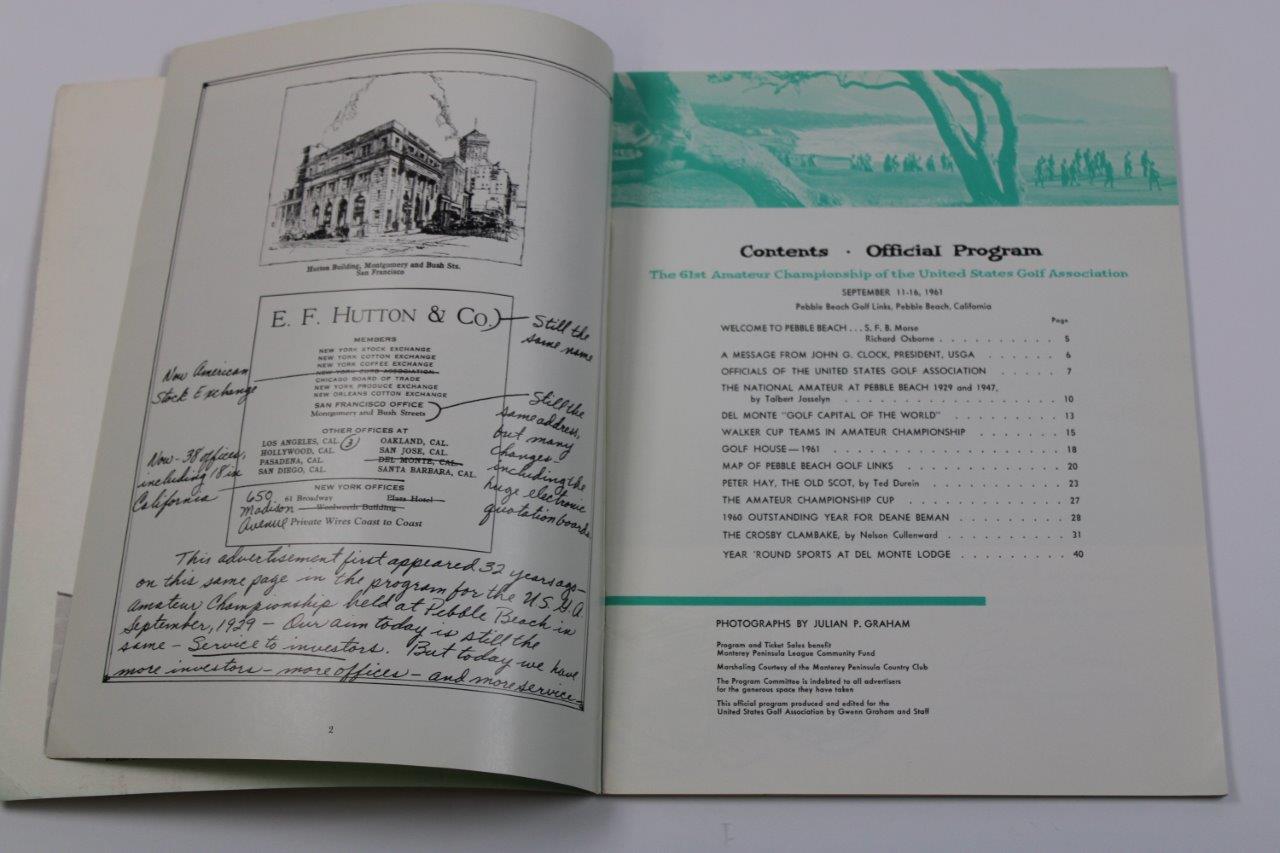 Hutton Building, Montgomery and Bush Sts.
San Francisco
E. F. HUTTON & CO.
Still the
same name
MEMBERS
NEW YORK STOCK EXCHANGE
NEW YORK COTTON EXCHANGE
NEW YORK COFFEE EXCHANGE
NEW YORK CURB ASSOCIATION
CHICAGO BOARD OF TRADE
NEW YORK PRODUCE EXCHANGE
NEW ORLEANS COTTON EXCHANGE
Now American
Stock Exchange
SAN FRANCISCO OFFICE
Montgomery and Bush Streets
Still the
same address,
but many
changes.
including the
huge electronic
quotation boards
OTHER OFFICES AT
LOS ANGELES, CAL. 3 OAKLAND, CAL.
HOLLYWOOD, CAL. SAN JOSE, CAL.
PASADENA, CAL. DEL MONTE, CAL.
SAN DIEGO, CAL. SANTA BARBARA, CAL.
Now - 38 offices,
including 18 in
California
NEW YORK OFFICES
650 61 Broadway Plaza Hotel
Madison Woolworth Building
Avenue Private Wires Coast to Coast
This advertisement first appeared 32 years ago—
on this same page in the program for the U.S.G.A.
Amateur Championship held at Pebble Beach in
September, 1929 — Our aim today is still the
same — Service to investors. But today we have
more investors — more offices — and more service—
2
Contents · Official Program
The 61st Amateur Championship of the United States Golf Association
SEPTEMBER 11-16, 1961
Pebble Beach Golf Links, Pebble Beach, California
Page
WELCOME TO PEBBLE BEACH . . . S. F. B. Morse
Richard Osborne . . . . . . . . . . 5
A MESSAGE FROM JOHN G. CLOCK, PRESIDENT, USGA . . . . . . 6
OFFICIALS OF THE UNITED STATES GOLF ASSOCIATION . . . . . 7
THE NATIONAL AMATEUR AT PEBBLE BEACH 1929 and 1947,
by Talbert Josselyn . . . . . . . . . . . . . . . . . . 10
DEL MONTE "GOLF CAPITAL OF THE WORLD" . . . . . . . . . 13
WALKER CUP TEAMS IN AMATEUR CHAMPIONSHIP . . . . . . . 15
GOLF HOUSE — 1961 . . . . . . . . . . . . . . . . . . . . 18
MAP OF PEBBLE BEACH GOLF LINKS . . . . . . . . . . . . . 20
PETER HAY, THE OLD SCOT, by Ted Durein . . . . . . . . . . 23
THE AMATEUR CHAMPIONSHIP CUP . . . . . . . . . . . . . 27
1960 OUTSTANDING YEAR FOR DEANE BEMAN . . . . . . . . . 28
THE CROSBY CLAMBAKE, by Nelson Cullenward . . . . . . . . 31
YEAR 'ROUND SPORTS AT DEL MONTE LODGE . . . . . . . . . 40
PHOTOGRAPHS BY JULIAN P. GRAHAM
Program and Ticket Sales benefit
Monterey Peninsula League Community Fund
Marshaling Courtesy of the Monterey Peninsula Country Club
The Program Committee is indebted to all advertisers
for the generous space they have taken
This official program produced and edited for the
United States Golf Association by Gwenn Graham and Staff